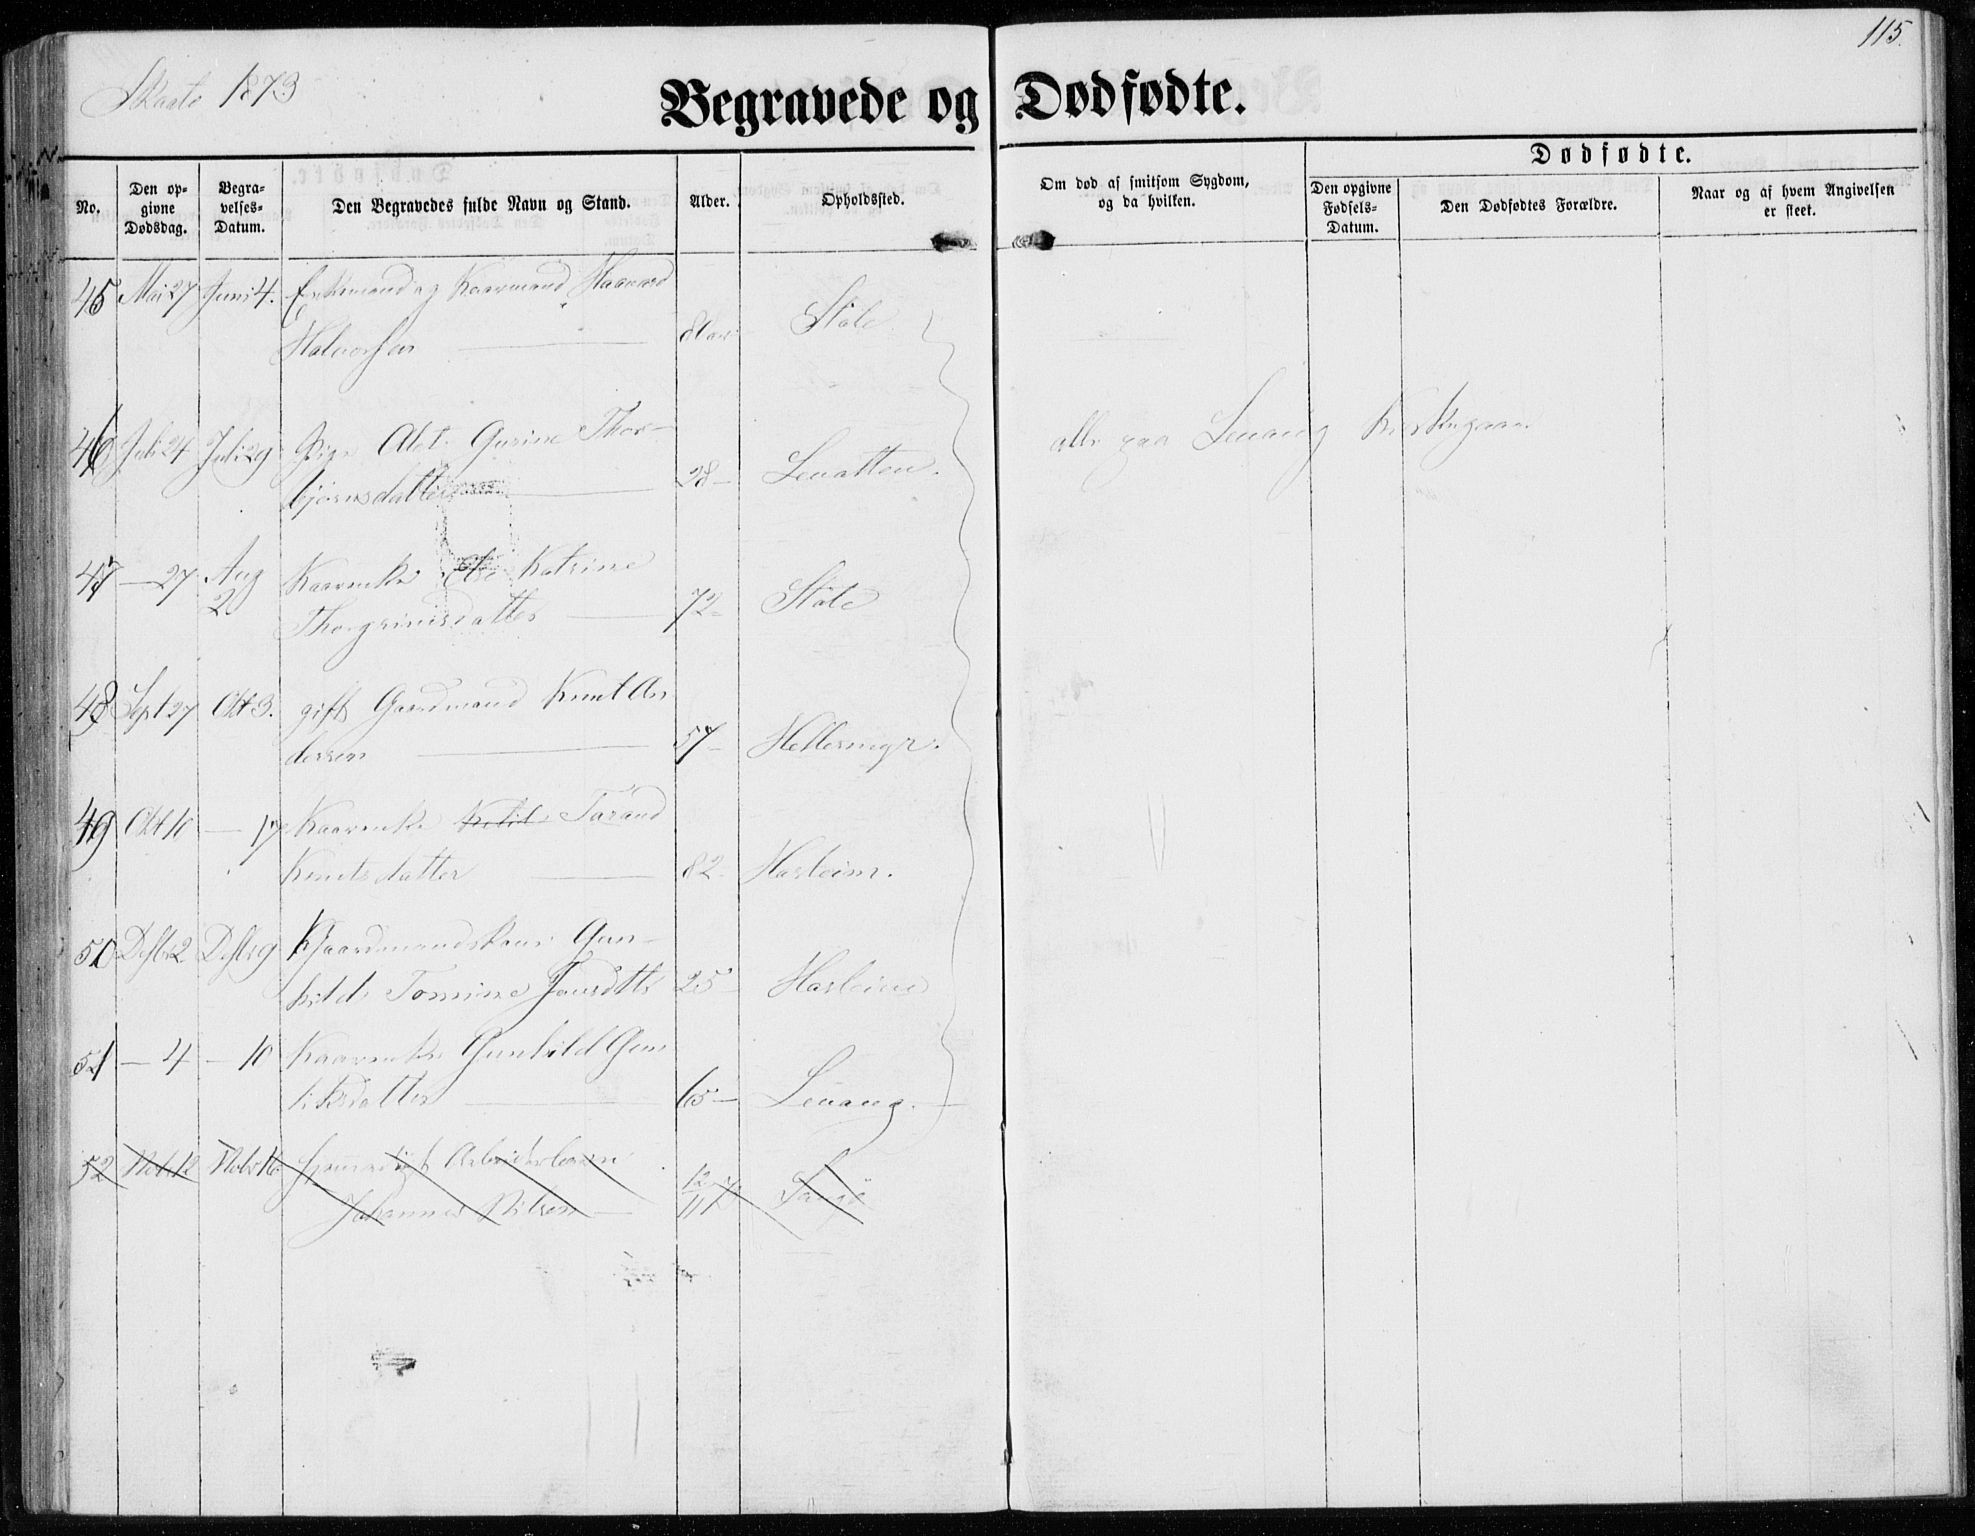 115.
Skaatö 1873
Begravede og Dødfødte.
No.
Den op-
givne
Dødsdag.
Begra-
velses-
Datum.
Den Begravedes fulde Navn og Stand.
Alder.
Opholdssted.
Om død af smitsom Sygdom,
og da hvilken.
Dødfødte.
Den opgivne
Fødsels-
Datum.
Den Dødfødtes Forældre.
Naar og af hvem Angivelsen
er skeet.
45 Mai 27 Juni 4. Enkemand og Kaarmand Haavard
Halvorsen 80 aar Støle
46 Juli 24 Juli 29 Pige Alet Gurine Thor-
bjørnsdatter 28 Levatten.
alle paa Levang Kirkegaard
47 — 27 Aug
2 Kaarenke Katrine
Thorgrimsdatter 72 Støle
48 Sept 27 Okt 3. gift Gaardmand Knut An
dersen 57 Hellermyr.
49 Okt 10 — 17 Kaarenke Tarand
Knutsdatter 82 Hasleim.
50 Desbr 2 Desbr 9 Gaardmandskone Gun-
hild Tomine Jensdttr 25 Hasleim
51 — 4 — 10 Kaarenke Gunhild Gun
65 — Levang.
52 Nobr 12 Nobr 16 Arbeiderbarn
Johannes Nilsen 12/11 7 Langö